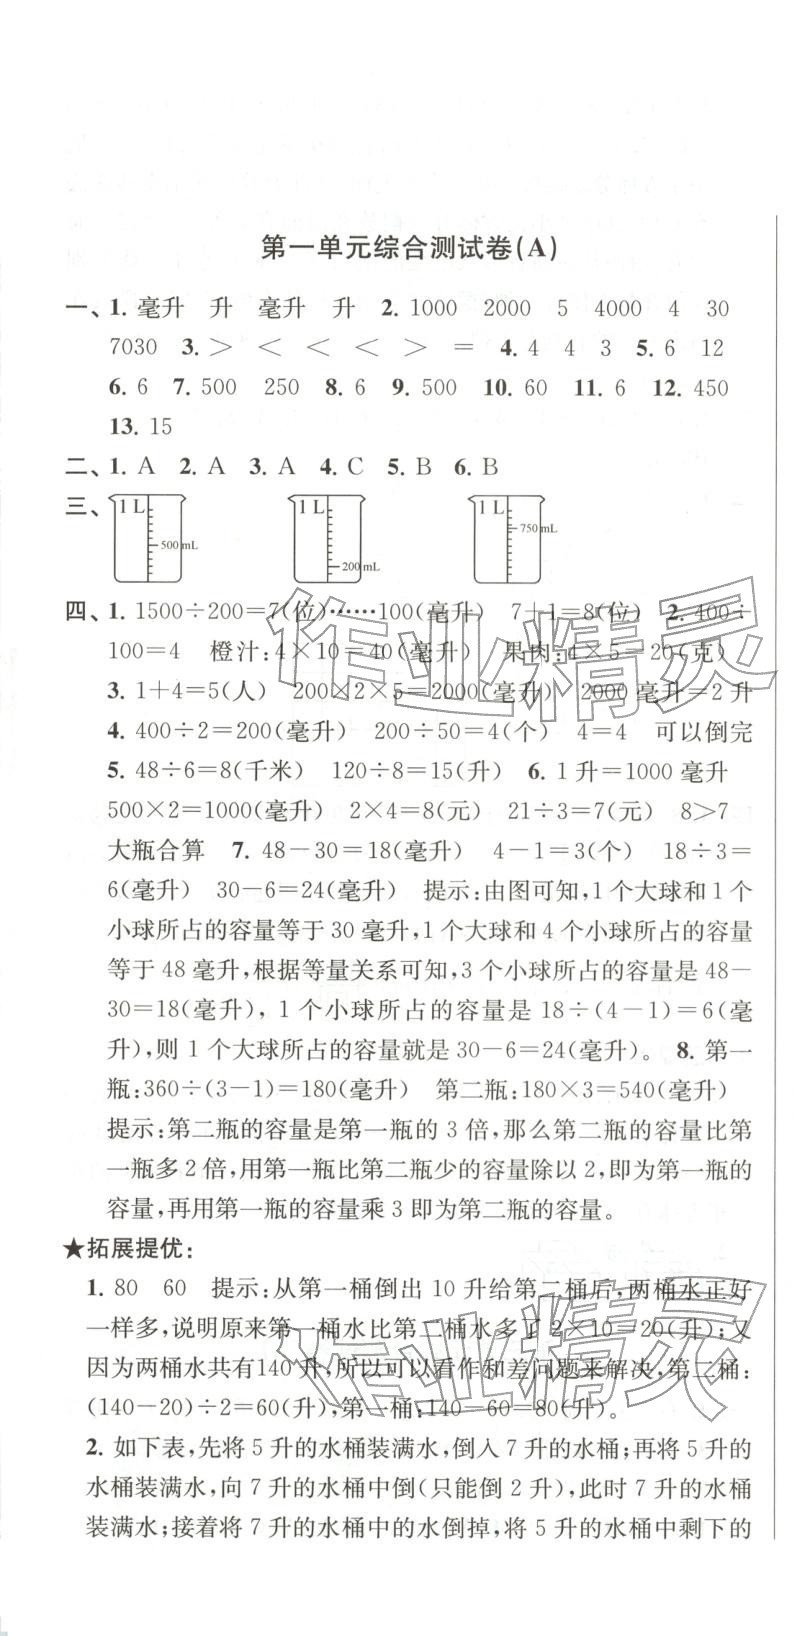 第一单元综合测试卷(A)
一、1. 毫升 升 毫升 升 2. 1000 2000 5 4000 4 30
7030 3. > < < < > = 4. 4 4 3 5. 6 12
6. 6 7. 500 250 8. 6 9. 500 10. 60 11. 6 12. 450
13. 15
二、1. A 2. A 3. A 4. C 5. B 6. B
三、 1 L 500 mL 1 L 200 mL 1 L 750 mL
四、1. 1500÷200=7(位)……100(毫升) 7+1=8(位) 2. 400÷
100=4 橙汁:4×10=40(毫升) 果肉:4×5=20(克)
3. 1+4=5(人) 200×2×5=2000(毫升) 2000毫升=2升
4. 400÷2=200(毫升) 200÷50=4(个) 4=4 可以倒完
5. 48÷6=8(千米) 120÷8=15(升) 6. 1升=1000毫升
500×2=1000(毫升) 2×4=8(元) 21÷3=7(元) 8>7
大瓶合算 7. 48-30=18(毫升) 4-1=3(个) 18÷3=
6(毫升) 30-6=24(毫升) 提示:由图可知,1个大球和1个
小球所占的容量等于30毫升,1个大球和4个小球所占的容量
等于48毫升,根据等量关系可知,3个小球所占的容量是48-
30=18(毫升),1个小球所占的容量是18÷(4-1)=6(毫
升),则1个大球所占的容量就是30-6=24(毫升)。 8. 第一
瓶:360÷(3-1)=180(毫升) 第二瓶:180×3=540(毫升)
提示:第二瓶的容量是第一瓶的3倍,那么第二瓶的容量比第
一瓶多2倍,用第一瓶比第二瓶少的容量除以2,即为第一瓶的
容量,再用第一瓶的容量乘3即为第二瓶的容量。
★拓展提优:
1. 80 60 提示:从第一桶倒出10升给第二桶后,两桶水正好
一样多,说明原来第一桶水比第二桶水多了2×10=20(升);又
因为两桶水共有140升,所以可以看作和差问题来解决,第二桶:
(140-20)÷2=60(升),第一桶:140-60=80(升)。
2. 如下表,先将5升的水桶装满水,倒入7升的水桶;再将5升的
水桶装满水,向7升的水桶中倒(只能倒2升),此时7升的水桶
装满水;接着将7升的水桶中的水倒掉,将5升的水桶中剩下的
作业精灵
作业精灵